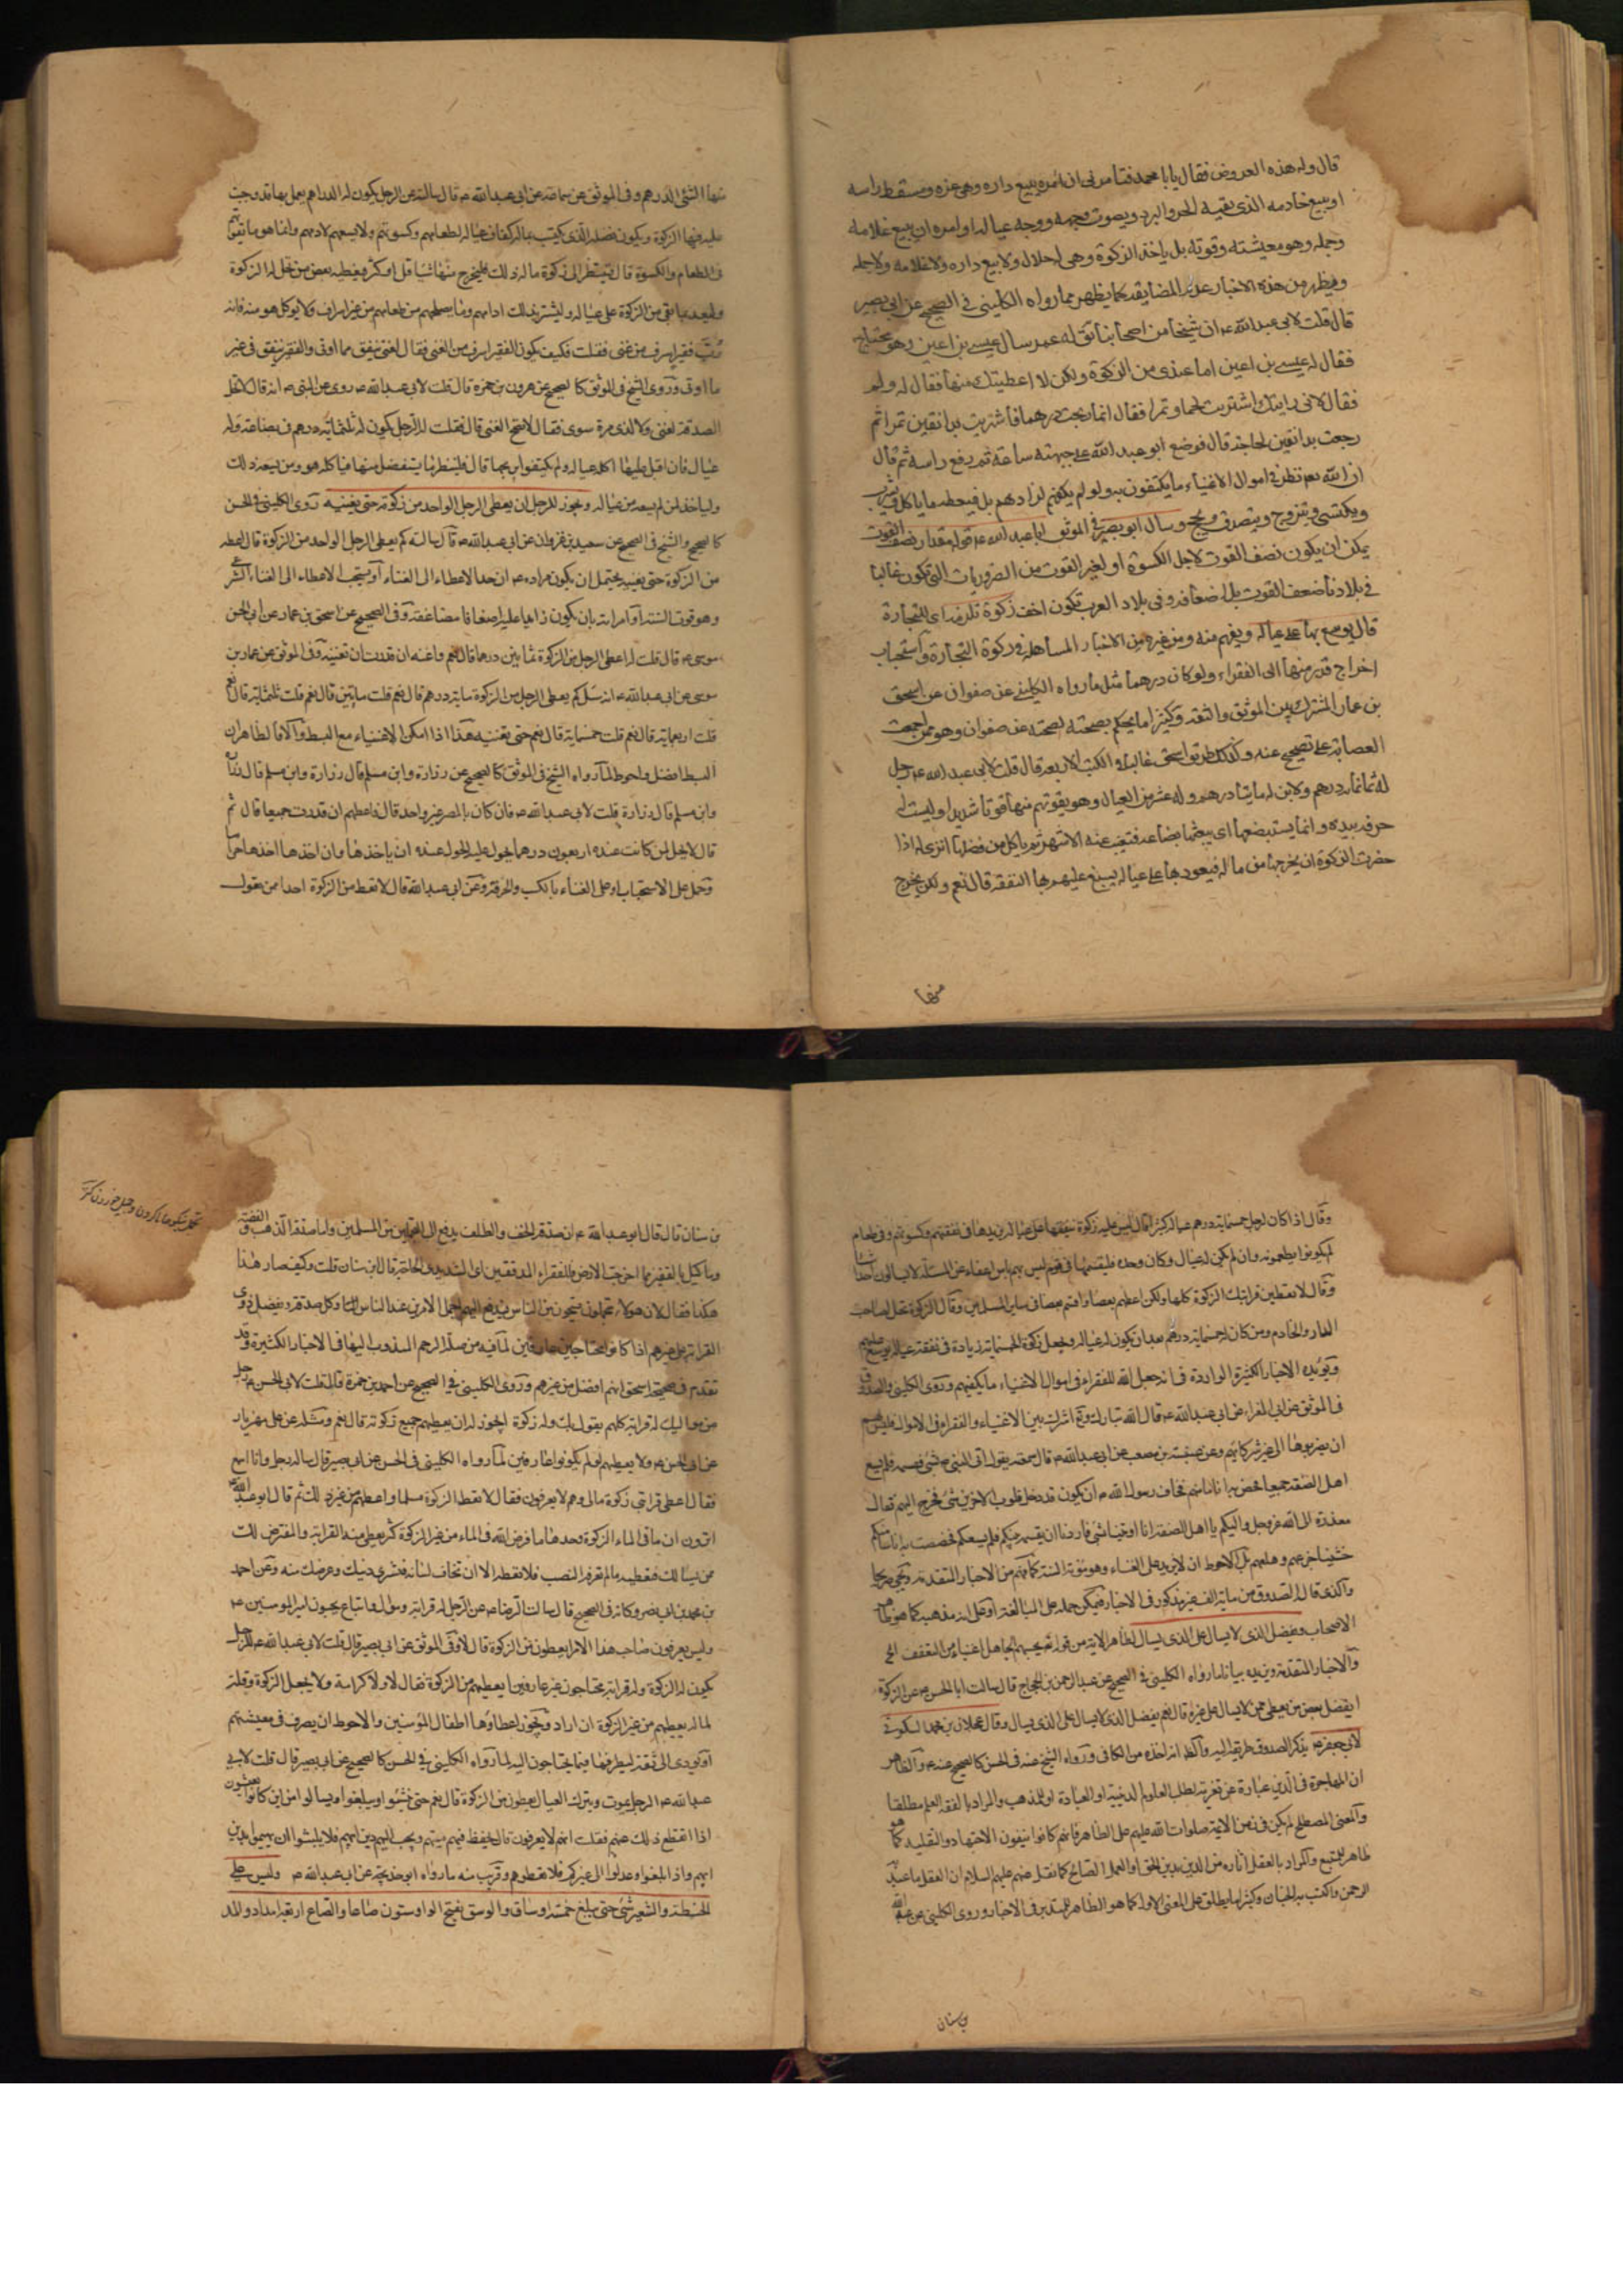 قال وله هذه العروض فقال يا با محمد فتأمرنى ان امره يبيع داره وهى عزه ومسقط راسه
او يبيع خادمه الذى يقيه الحر والبرد ويصون وجهه ووجه عياله او امره ان يبيع غلامه
وجمله وهو معيشته وقوته بل ياخذ الزكوة وهى له حلال ولا يبيع داره ولا غلامه ولا جمله
ويظهر من هذه الاخبار عدم المضايقه كما يظهر مما رواه الكلينى فى الصحيح عن ابى بصير
قال قلت لابى عبد الله ع ان شيخا من اصحابنا يق له عمر سال عيسى بن اعين وهو محتاج
فقال له عيسى بن اعين اما عندى من الزكوة ولكن لا اعطيتك منها فقال له ولم
فقال لانى رايتك اشتريت لحما وتمرا فقال انما ربحت درهما فاشتريت بدانقين تمرا ثم
رجعت بدانقين لحاجة قال فوضع ابو عبد الله ع على جبهته ساعة ثم رفع راسه ثم قال
ان الله نظر فى اموال الاغنياء ما يكتفون به ولو لم يكفهم لزادهم بل فيعطه ما ياكل ويشرب
ويكتسى ويتزوج ويتصدق ويحج وسال ابو بصير فى الموثق ابا عبد الله ع قوله مقدار نصف القوت
يمكن ان يكون نصف القوت لاجل الكسوة او لغير القوت من الضروريات التى تكون غالبا
فى بلادنا ضعف القوت بل اضعافه وفى بلاد العرب تكون اخف زكوة تلزمه اى للتجارة
قال يوسع بها على عياله ويفهم منه ومن غيره من الاخبار المساهله فى زكوة التجارة واستحباب
اخراج قدر منها الى الفقراء ولو كان درهما مثل ما رواه الكلينى عن صفوان عن اسحق
بن عمار المشترك بين الموثق والثقه وكثيرا ما يحكم بصحته لصحته عن صفوان وهو ممن اجمعت
العصابة على تصحيح عنه وكذلك طريق اسحق غالبا فى الكتب الاربعة قال قلت لابى عبد الله ع رجل
له ثمانمأة درهم ولابن له مايتا درهم وله عشر من العيال وهو يقوتهم منها قوتا شديدا وليست له
حرفه بيده وانما يستبضعها اى يبعثها بضاعه فتغيب عنه الاشهر ثم ياكل من فضلها اترى له اذا
حضرت الزكوة ان يخرجها من ماله فيعود بها على عياله يسبغ عليهم بها النفقه قال نعم ولكن يخرج
منها
منها الشئ الدرهم وفى الموثق عن سماعة عن ابى عبد الله ع قال سالته عن الرجل يكون له الدراهم يعمل بها وقد وجبت
عليه فيها الزكوة ويكون فضله الذى يكتسب بماله كفاف عياله لطعامهم وكسوتهم ولا يسعهم لادمهم وانما هو ما يقوتهم
فى الطعام والكسوة قال فلينظر الى زكوة ماله ذلك فليخرج منها شيئا قل او كثر فيعطيه بعض من تحل له الزكوة
وليعد بما بقى من الزكوة على عياله وليشتر بذلك ادامهم وما يصلحهم من طعامهم من غير اسراف ولا ياكل هو منه فانه
رب فقير اسرف من غنى فقلت فكيف يكون الفقير اسرف من الغنى فقال الغنى ينفق مما اوتى والفقير ينفق من غير
ما اوتى وروى الشيخ فى الموثق كالصحيح عن هرون بن حمزة قال قلت لابى عبد الله ع روى عن النبى ص انه قال لا تحل
الصدقة لغنى ولا لذى مرة سوى فقال لا تصلح لغنى قال فقلت له الرجل يكون له ثلثمائة درهم فى بضاعة وله
عيال فان اقبل عليها اكلها عياله ولم يكتفوا بربحها قال فلينظر ما يستفضل منها فياكله هو ومن يسعه ذلك
ولياخذ لمن لم يسعه من عياله ويجوز للرجل ان يعطى الرجل الواحد من زكوته حتى يغنيه روى الكلينى فى الحسن
كالصحيح والشيخ فى الصحيح عن سعيد بن غزوان عن ابى عبد الله ع قال سالته كم يعطى الرجل الواحد من الزكوة قال اعطه
من الزكوة حتى تغنيه يحتمل ان يكون مراده ع ان حد الاعطاء الى الغناء او يستحب الاعطاء الى الغناء
وهو قوت السنة او امر ان يكون زايدا عليه اضعافا مضاعفة وفى الصحيح عن اسحق بن عمار عن ابى الحسن
موسى ع قال قلت له اعطى الرجل من الزكوة ثمانين درهما قال نعم وزده قلت اعطيه مائة قال نعم واغنه ان قدرت ان تغنيه وفى الموثق عن عمار بن
موسى عن ابى عبد الله ع انه سئل كم يعطى الرجل من الزكوة مائة درهم قال نعم قلت مايتين قال نعم قلت ثلثمائة قال نعم
قلت اربعمائة قال نعم قلت خمسمائة قال نعم حتى تغنيه هذا اذا امكن الاغنياء مع البسط والا فالظاهر ان
البسط افضل واحوط لما رواه الشيخ فى الموثق كالصحيح عن زرارة وابن مسلم قال زرارة
وابن مسلم قال زرارة قلت لابى عبد الله ع فان كان بالمصر غير واحد قال فاعطهم ان قدرت جميعا قال ثم
قال لا يحل لمن كانت عنده اربعون درهما يحول عليه الحول عنده ان ياخذها وان اخذها اخذها حراما
وحمل على الاستحباب او على الغناء بالكسب والحرفة وعن ابى عبد الله قال لا تعط من الزكوة احدا ممن تعول
وقال اذا كان لرجل خمسمائة درهم وعياله كثيرا قال ليس عليه زكوة ينفقها على عياله يزيدها فى نفقتهم وكسوتهم وفى طعام
لم يكونوا يطعمونه وان لم يكن له عيال وكان وحده فليقسمها فى قوم ليس بهم باس اعفاء عن المسئلة لا يسالون احدا شيئا
وقال لا تعطين قرابتك الزكوة كلها ولكن اعطهم بعضا واقسم بعضا فى ساير المسلمين وقال الزكوة تحل لصاحب
الدار والخادم ومن كان له خمسمائة درهم بعد ان يكون له عيال ويجعل زكوة الخمسمائة زيادة فى نفقة عياله يوسع عليهم
ويؤيده الاخبار الكثيرة الواردة فى انه جعل الله للفقراء فى اموال الاغنياء ما يكفيهم وروى الكلينى والصدوق
فى الموثق عن ابى المغرا عن ابى عبد الله ع قال الله تبارك وتع اشرك بين الاغنياء والفقراء فى الاموال فليس لهم
ان يصرفوها الى غير شركائهم وعن عنبسة بن مصعب عن ابى عبد الله ع قال سمعته يقول اتى النبى ص بشئ فقسمه فلم يسع
اهل الصفة جميعا فخص به اناسا منهم فخاف رسول الله ص ان يكون قد دخل قلوب الاخرين شئ فخرج اليهم فقال
معذرة الى الله عز وجل واليكم يا اهل الصفة انا اوتينا بشئ فاردنا ان نقسمه بينكم فلم يسعكم فخصصت به اناسا منكم
خشينا جزعهم وهلعهم بل الاحوط ان لا يزيد على الغناء وهو مؤنة السنة كما فهم من الاخبار المتقدمة
والذى قاله الصدوق من مائة الف غير مذكور فى الاخبار فيمكن حمله على المبالغة او على انه مذهبه كما هو ظاهر
الاصحاب ويفضل الذى لا يسال على الذى يسال لظاهر الاية من قوله تع يحسبهم الجاهل اغنياء من التعفف الخ
والاخبار المتقدمة ويزيده بيانا ما رواه الكلينى فى الصحيح عن عبد الرحمن بن الحجاج قال سالت ابا الحسن ع عن الزكوة
ايفضل بعض من يعطى ممن لا يسال على غيره قال نعم يفضل الذى لا يسال على الذى يسال وقال عبد الله بن عجلان السكونى
لابى جعفر ع لم يذكر الصدوق طريقه اليه والظاهر انه اخذه من الكافى ورواه الشيخ عنه فى الحسن كالصحيح عنه ع والظاهر
ان المهاجرة فى الدين عبارة عن تغربه لطلب العلوم الدينية او العبادة او المذهب والمراد بالفقه العلم مطلقا
والمعنى المصطلح لم يكن فى زمن الائمة صلوات الله عليهم على الظاهر فانهم كانوا ينفون الاجتهاد والتقليد كما هو
ظاهر للمتتبع والمراد بالعقل اثاره من التدين بدين الحق او العمل الصالح كما نقل عنهم عليهم السلام ان العقل ما عبد به
الرحمن واكتسب به الجنان وكثيرا ما يطلق على المعنى الاول كما هو الظاهر للمتدبر فى الاخبار وروى الكلينى عن عبد الله
بن سنان
بن سنان قال قال ابو عبد الله ع ان صدقة الخف والظلف يدفع الى المتجملين من المسلمين واما صدقة الذهب والفضة
وما كيل بالقفيز مما اخرجت الارض فللفقراء المدقعين اى الشديدى الحاجة قال ابن سنان قلت وكيف صار هذا
هكذا فقال لان هؤلاء متجملون يستحيون من الناس فيدفع اليهم اجمل الامرين عند الناس وكل صدقة ويفضل ذوى
القرابة على غيرهم اذا كانوا محتاجين عارفين لما فيه من صلة الرحم المندوب اليها فى الاخبار الكثيرة وقد
تقدم فى صحيحة اسحق انهم افضل من غيرهم وروى الكلينى فى الصحيح عن احمد بن حمزة قال قلت لابى الحسن ع رجل
من مواليك له قرابة كلهم يقول بك وله زكوة ايجوز له ان يعطيهم جميع زكوته قال نعم ومثله عن على بن مهزيار
عن ابى الحسن ع ولا يعطيهم لو لم يكونوا عارفين لما رواه الكلينى فى الحسن عن ابى بصير قال ساله رجل وانا اسمع
فقال اعطى قرابتى زكوة مالى وهم لا يعرفون فقال لا تعط الزكوة الا مسلما واعطهم من غير ذلك ثم قال ابو عبد الله ع
اترون ان ما فى المال الزكوة وحدها ما فرض الله فى المال من غير الزكوة اكثر يعطى منه القرابة والمعترض لك
ممن يسالك فتعطيه ما لم تعرفه بالنصب فلا تعطه الا ان تخاف لسانه فتشترى دينك وعرضك منه وعن احمد
بن محمد بن ابى نصر وكانه فى الصحيح قال سالت الرضا ع عن الرجل له قرابة وموال واتباع يحبون امير المومنين ع
وليس يعرفون صاحب هذا الامر ايعطون من الزكوة قال لا وفى الموثق عن ابى بصير قال قلت لابى عبد الله ع الرجل
يكون له الزكوة وله قرابة محتاجون غير عارفين ايعطيهم من الزكوة فقال لا ولا كرامة ولا يجعل الزكوة وقاية
لماله يعطيهم من غير الزكوة ان اراد ويجوز اعطاؤها اطفال المؤمنين والاحوط ان يصرف فى معيشتهم
او يؤدى الى ثقة ليصرفها فيما يحتاجون اليه لما رواه الكلينى فى الحسن كالصحيح عن ابى بصير قال قلت لابى
عبد الله ع الرجل يموت ويترك العيال ايعطون من الزكوة قال نعم حتى ينشؤا ويبلغوا ويسالوا من اين كانوا يعيشون
اذا انقطع ذلك عنهم فقلت انهم لا يعرفون قال يحفظ فيهم ميتهم ويحبب اليهم دين ابيهم فلا يلبثوا ان يهتموا بدين
ابيهم واذا بلغوا وعدلوا الى غيركم فلا تعطوهم وقريب منه ما رواه ابو خديجة عن ابى عبد الله ع وليس على
الحنطة والشعير شئ حتى يبلغ خمسة اوساق والوسق بفتح الواو ستون صاعا والصاع اربعة امداد والمد